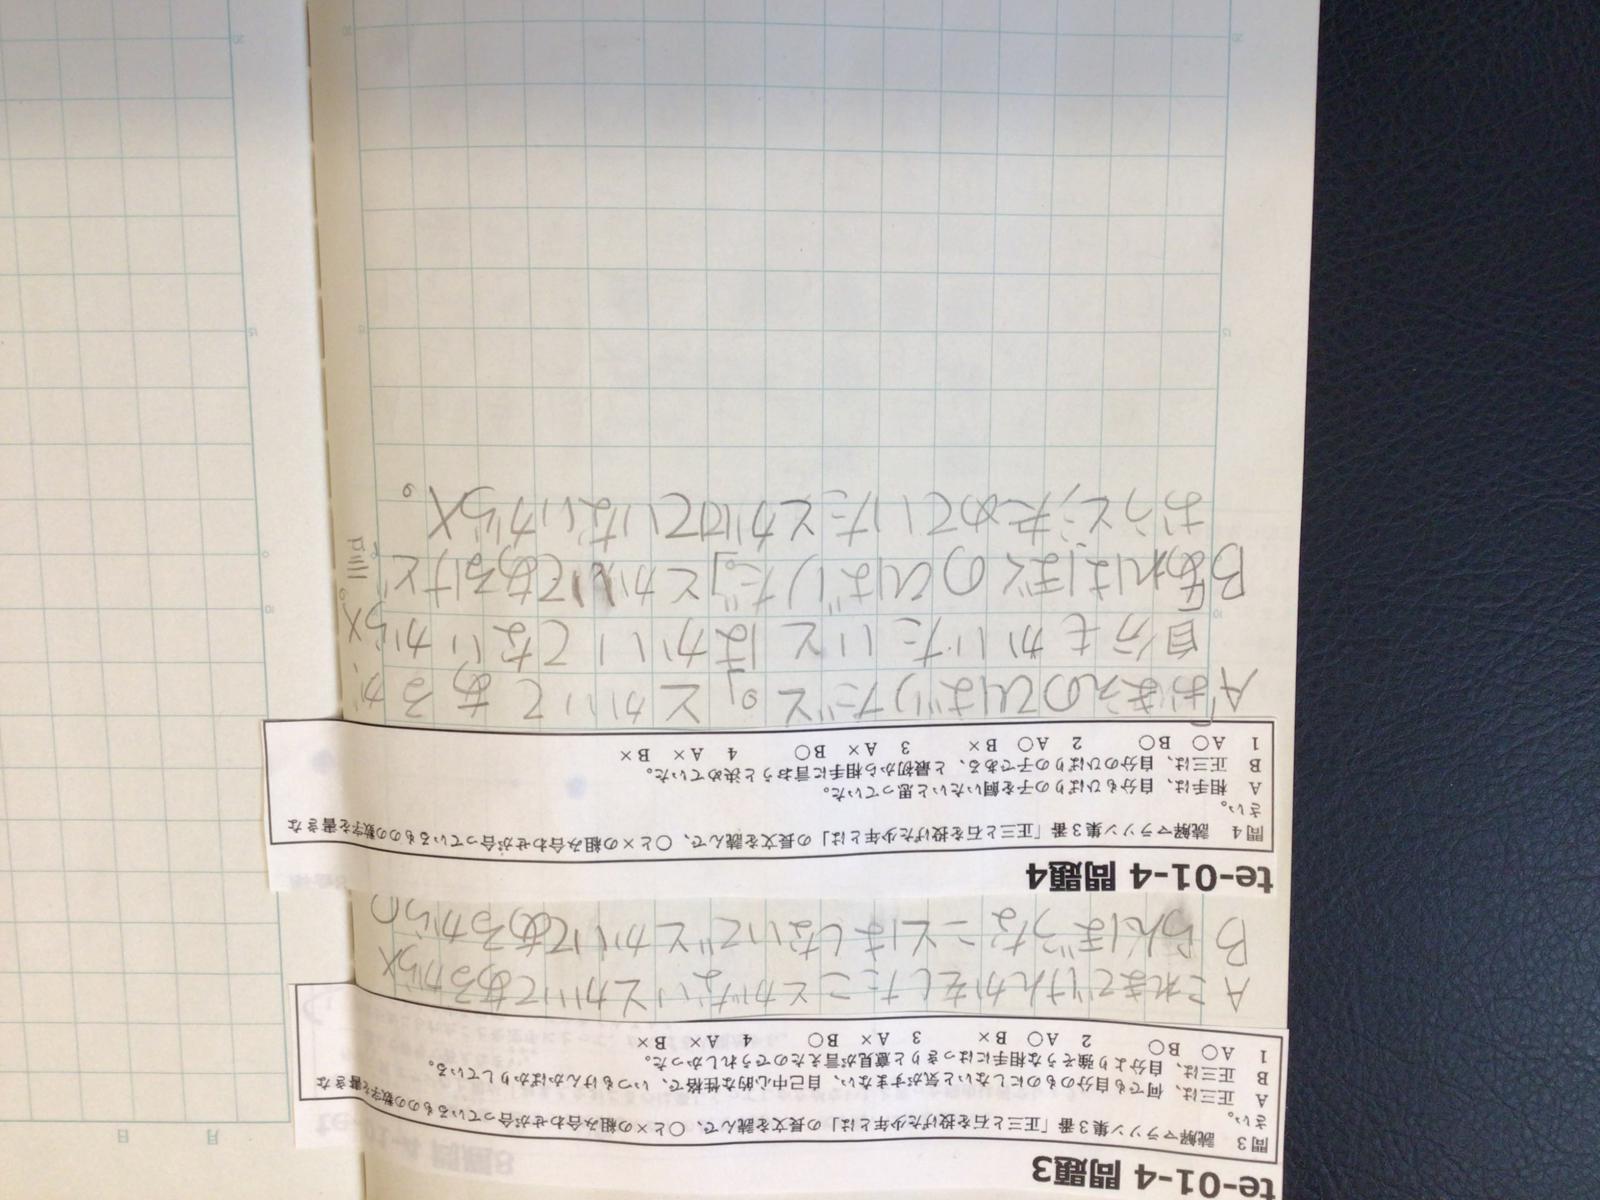 te-01-4 問題3
問3 読解マラソン集3番「正三と石を投げた少年とは」の長文を読んで、○と×の組み合わせが合っているものの数字を書きな
さい。
A 正三は、何でも自分のものにしないと気がすまない、自己中心的な性格で、いつもけんかばかりしている。
B 正三は、自分より強そうな相手にはっきりと意見が言えたのでうれしかった。
1 A○ B○ 2 A○ B× 3 A× B○ 4 A× B×
AこれまでけんかをしたことがないとかいてあるからX
Bらんぼうなことはしないでとかいてあるから○
te-01-4 問題4
問4 読解マラソン集3番「正三と石を投げた少年とは」の長文を読んで、○と×の組み合わせが合っているものの数字を書きな
さい。
A 相手は、自分もひばりの子を飼いたいと思っていた。
B 正三は、自分のひばりの子である、と最初から相手に言おうと決めていた。
1 A○ B○ 2 A○ B× 3 A× B○ 4 A× B×
A「おまえのひばりだと。」とかいてあるが、
自分もかいたいとはかいてないからX。
B「あればぼくのひばりだ。」とかいてあるけど
おうと、ためていたとかいていないからX。